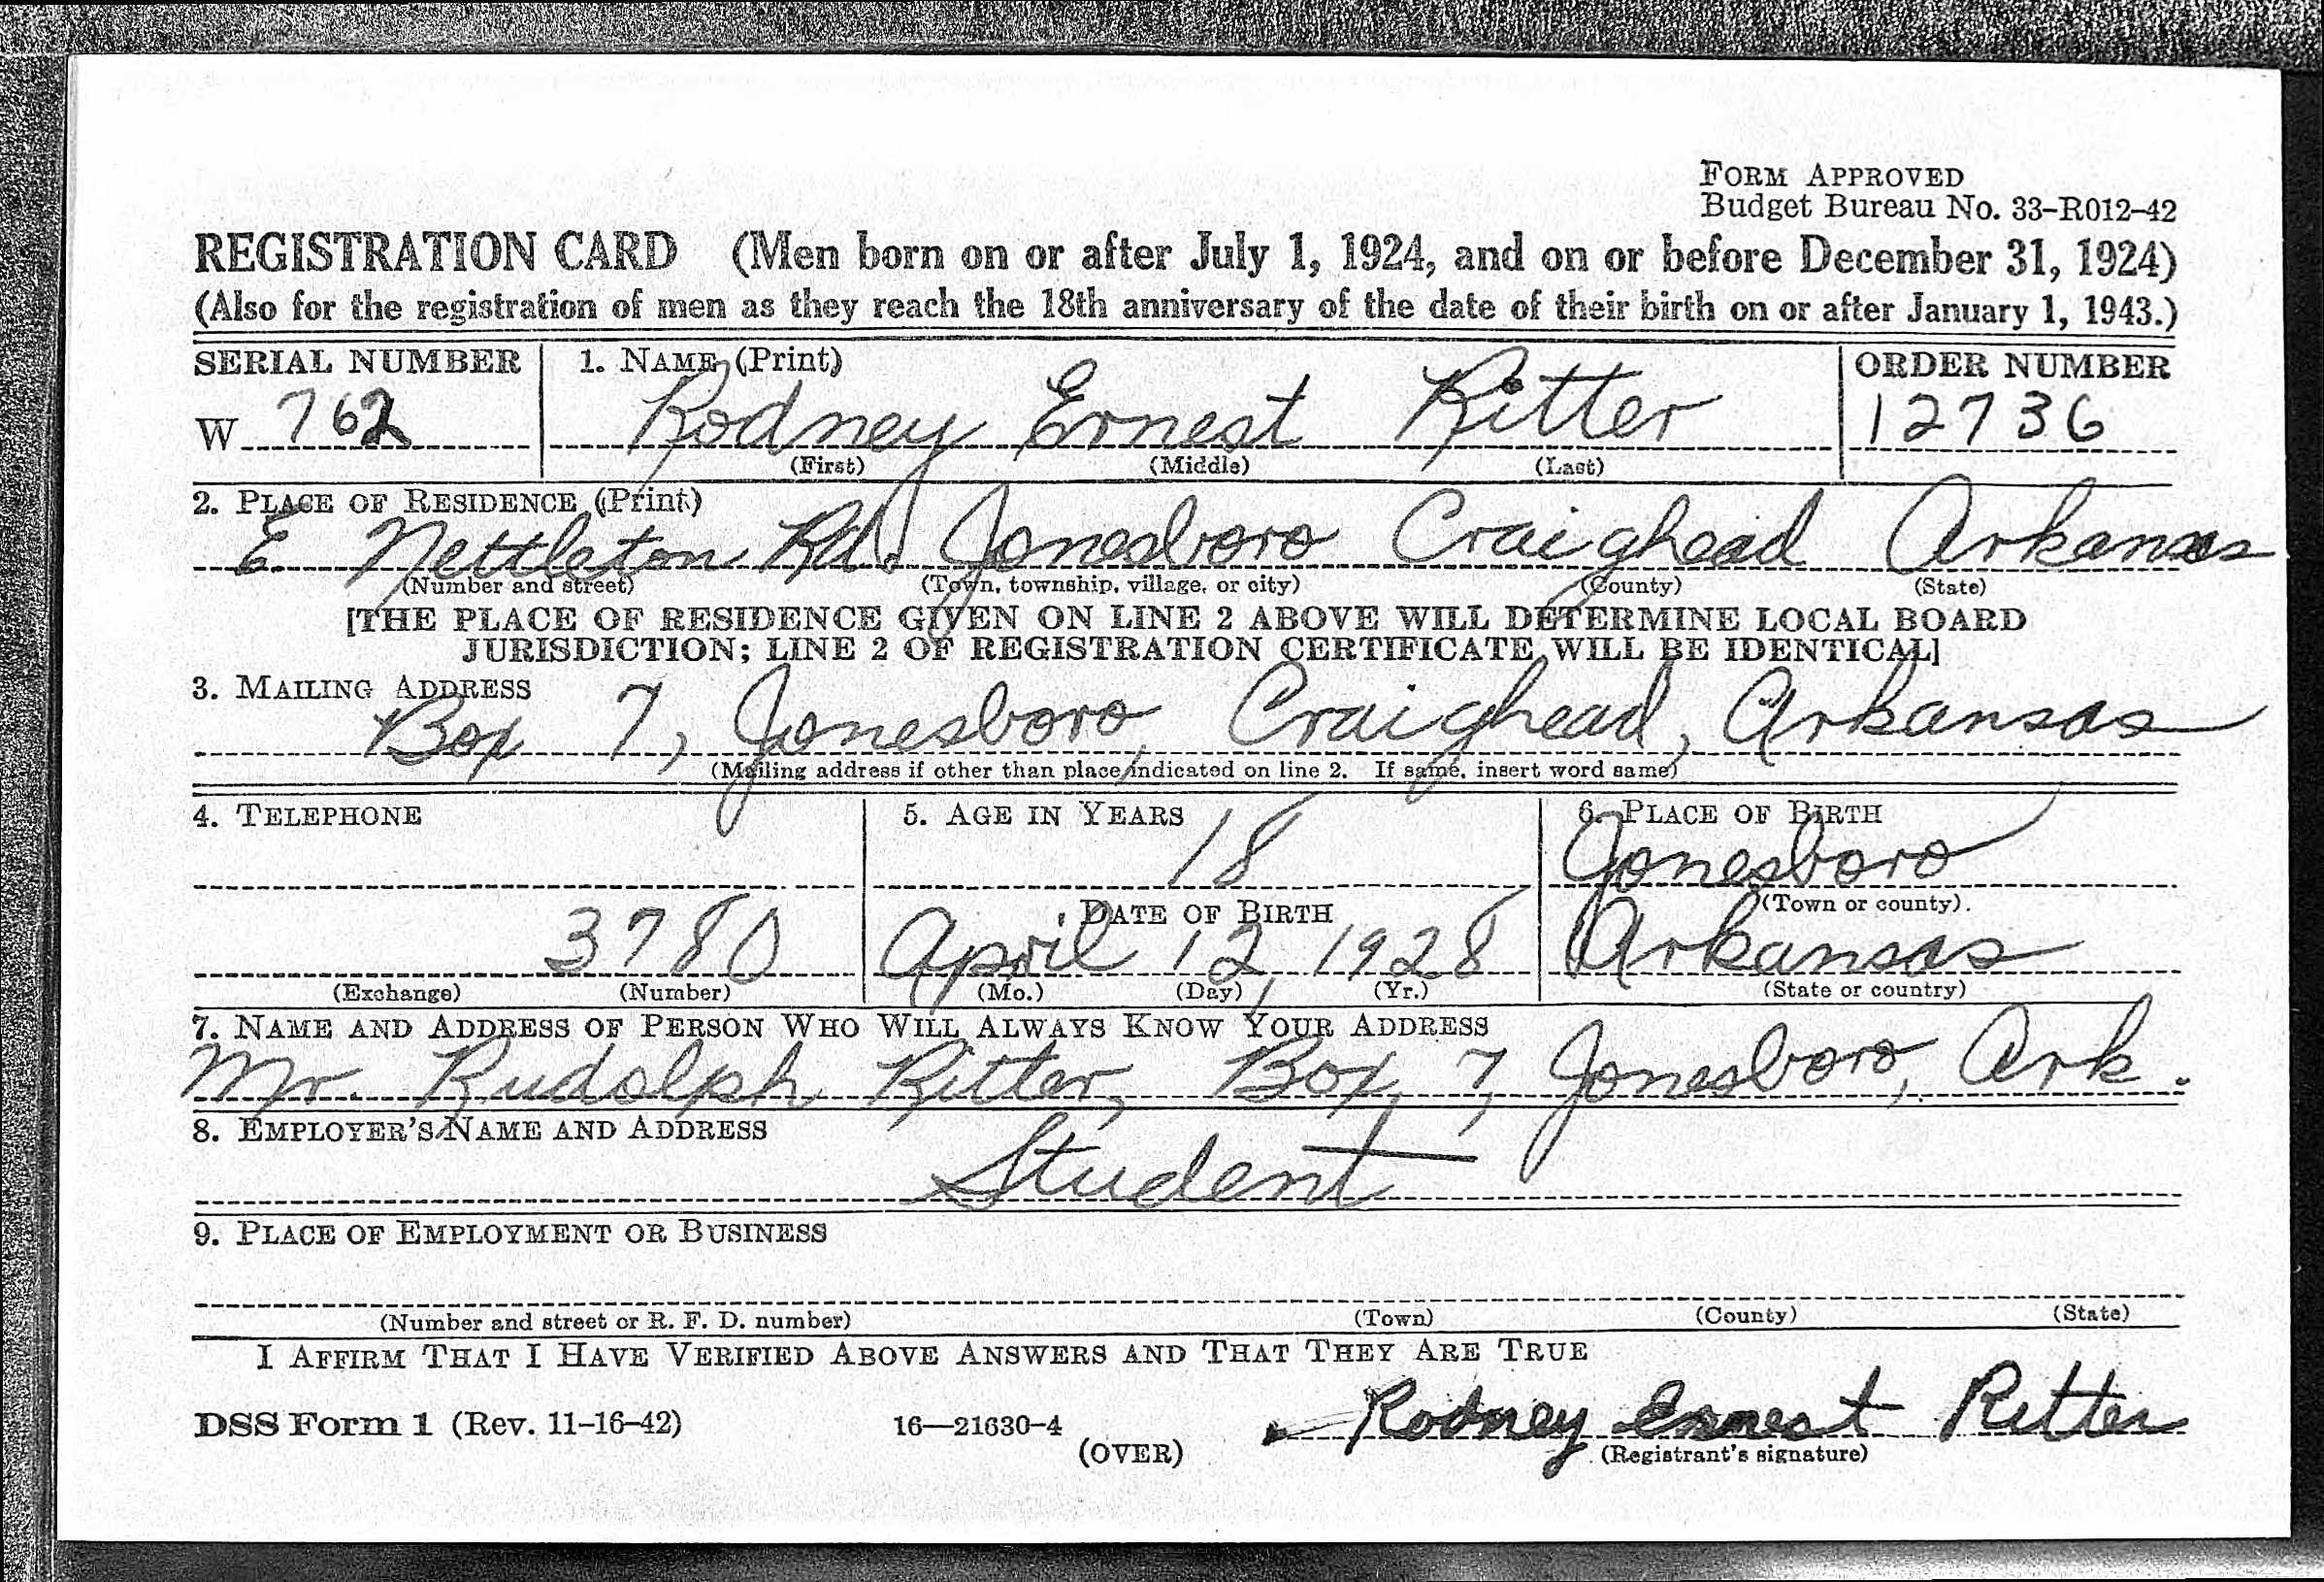 FORM APPROVED
Budget Bureau No. 33-R012-42
REGISTRATION CARD (Men born on or after July 1, 1924, and on or before December 31, 1924)
(Also for the registration of men as they reach the 18th anniversary of the date of their birth on or after January 1, 1943.)
SERIAL NUMBER 1. NAME (Print) ORDER NUMBER
W 762 Rodney Ernest Ritter 12736
(First) (Middle) (Last)
2. PLACE OF RESIDENCE (Print)
E. Nettleton Rd. Jonesboro Craighead Arkansas
(Number and street) (Town, township, village, or city) (County) (State)
[THE PLACE OF RESIDENCE GIVEN ON LINE 2 ABOVE WILL DETERMINE LOCAL BOARD
JURISDICTION; LINE 2 OF REGISTRATION CERTIFICATE WILL BE IDENTICAL]
3. MAILING ADDRESS
Box 7, Jonesboro, Craighead, Arkansas
(Mailing address if other than place indicated on line 2. If same, insert word same)
4. TELEPHONE 5. AGE IN YEARS 6. PLACE OF BIRTH
18 Jonesboro
DATE OF BIRTH (Town or county)
3780 April 12, 1928 Arkansas
(Exchange) (Number) (Mo.) (Day) (Yr.) (State or country)
7. NAME AND ADDRESS OF PERSON WHO WILL ALWAYS KNOW YOUR ADDRESS
Mr. Rudolph Ritter, Box 7, Jonesboro, Ark.
8. EMPLOYER'S NAME AND ADDRESS
Student
9. PLACE OF EMPLOYMENT OR BUSINESS
(Number and street or R. F. D. number) (Town) (County) (State)
I AFFIRM THAT I HAVE VERIFIED ABOVE ANSWERS AND THAT THEY ARE TRUE
DSS Form 1 (Rev. 11-16-42) 16—21630-4 Rodney Ernest Ritter
(OVER) (Registrant's signature)